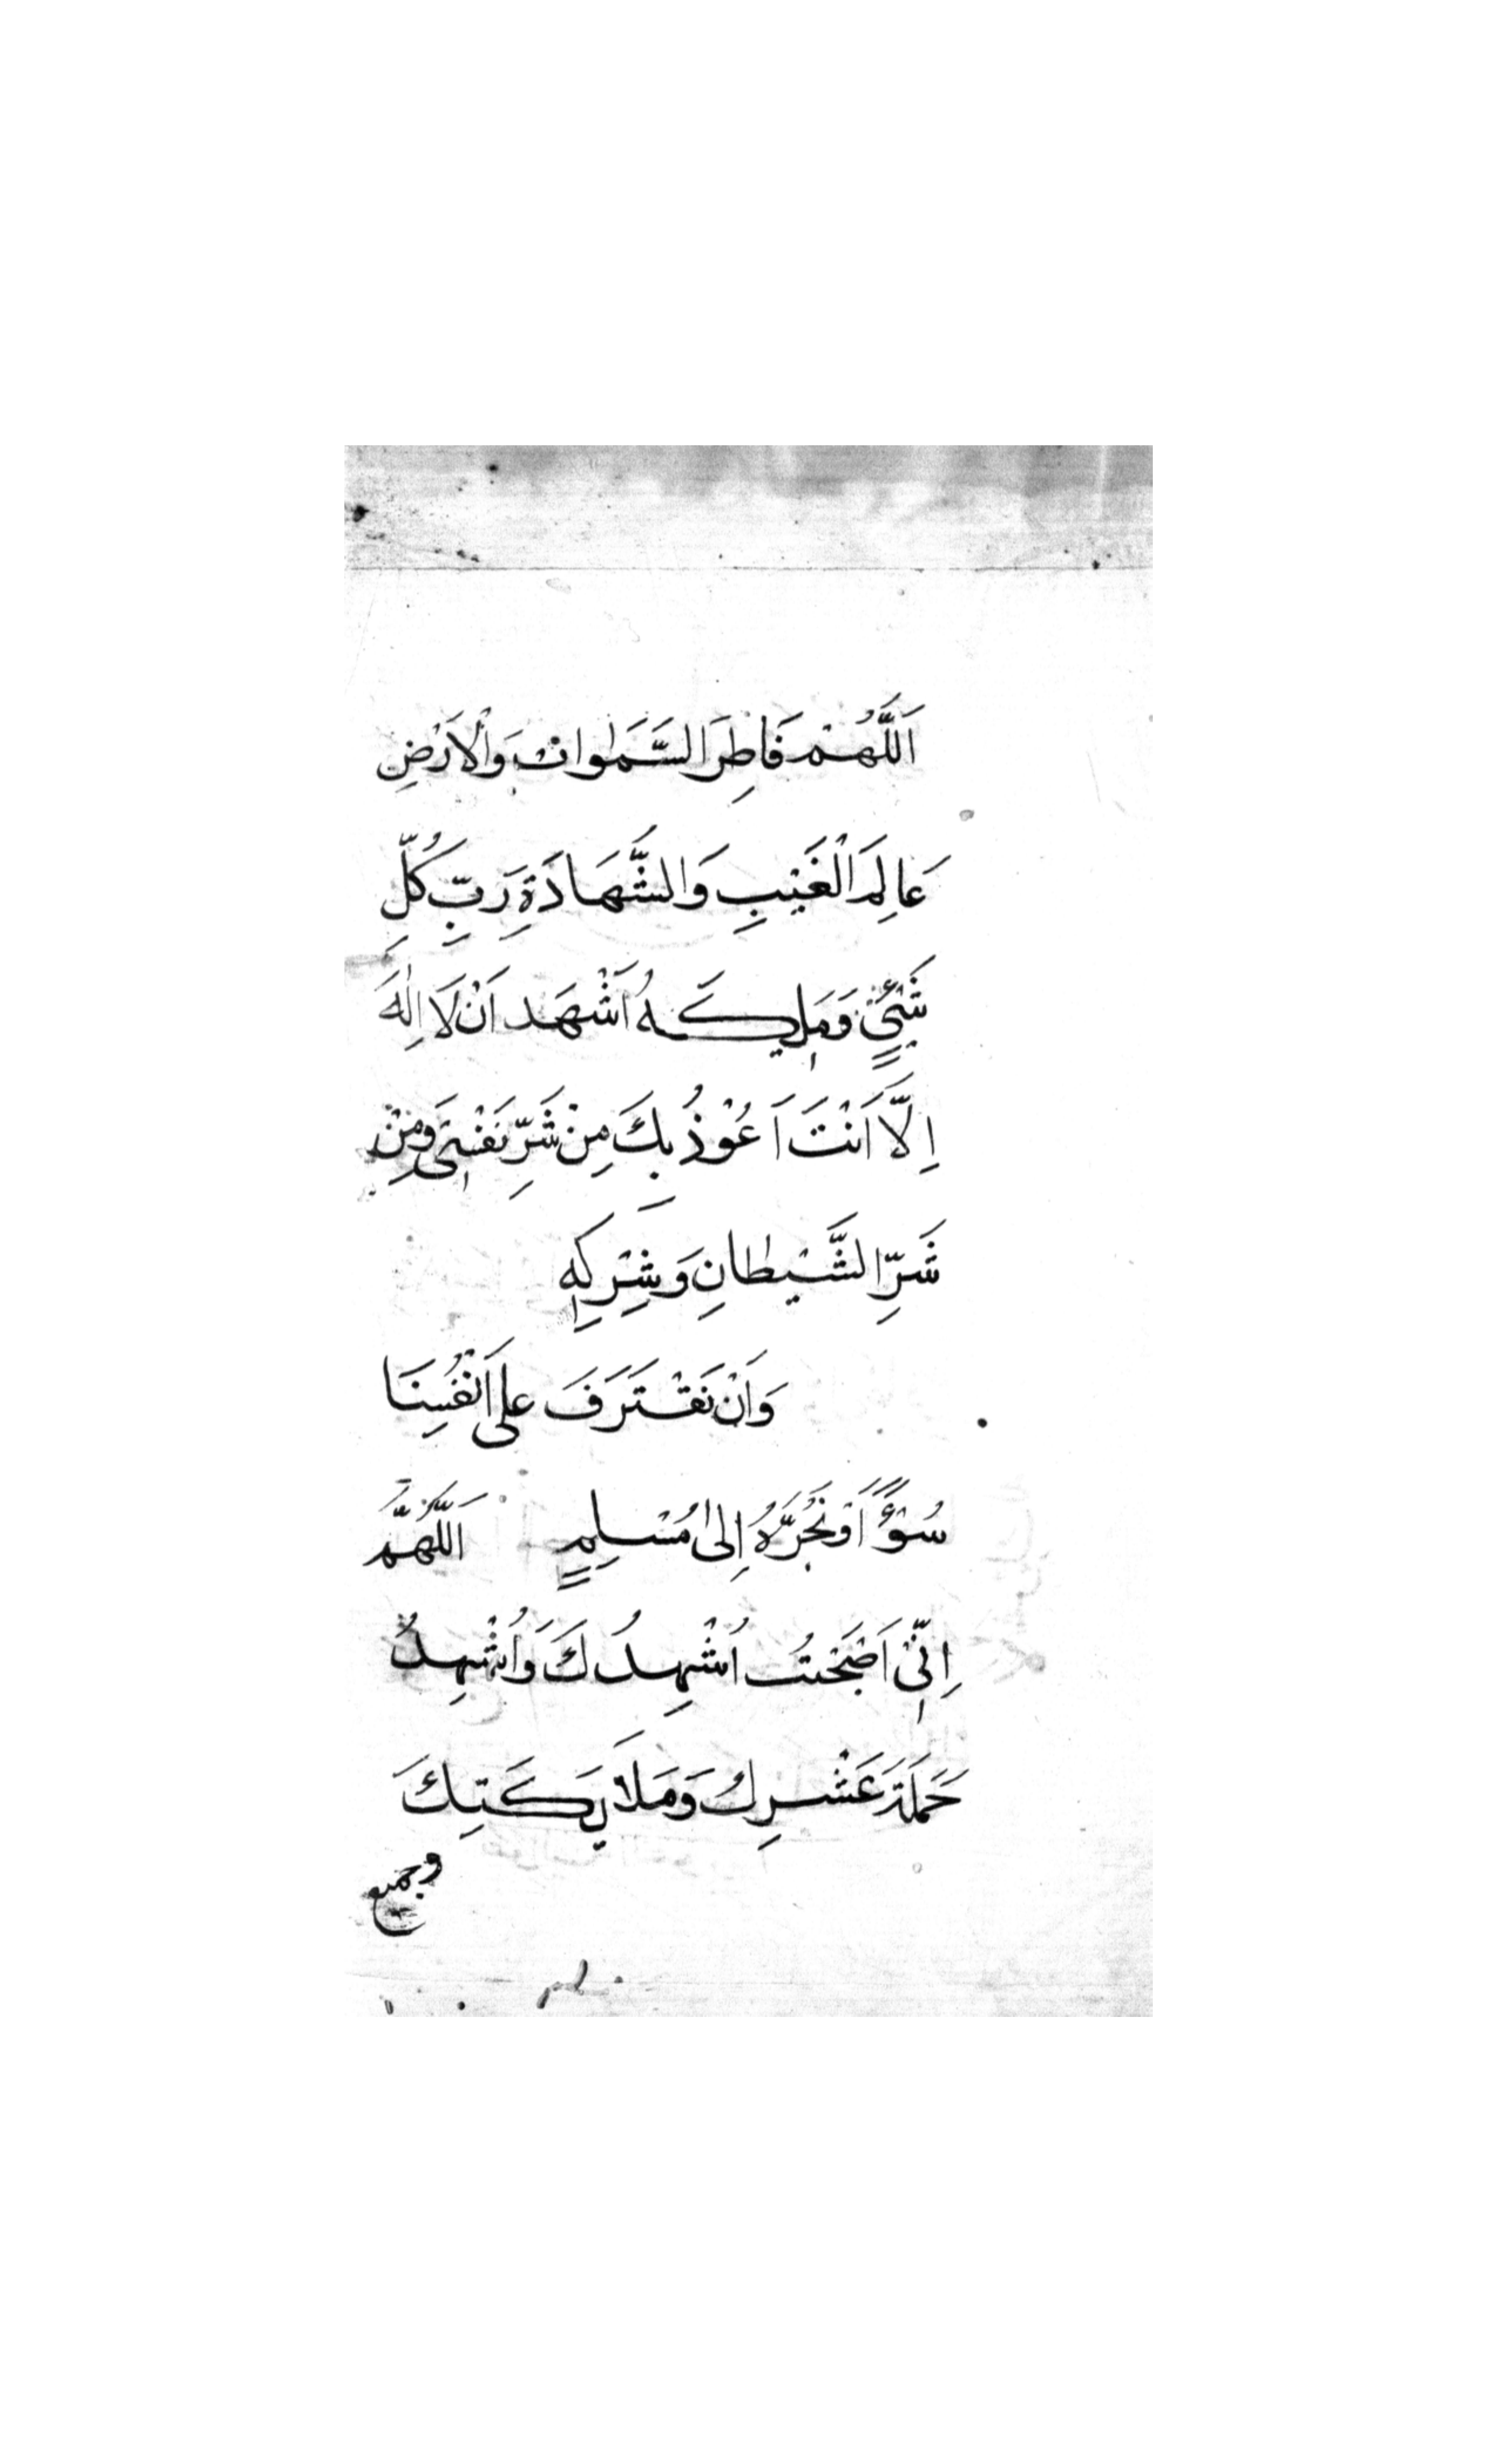 اَللّٰهُمَّ فَاطِرَ السَّمٰوَاتِ وَالْاَرْضِ
عَالِمَ الْغَيْبِ وَالشَّهَادَةِ رَبِّ كُلِّ
شَيْئٍ وَمَلِيكَهُ اَشْهَد اَنْ لَا اِلٰهَ
اِلَّا اَنْتَ اَعُوْذُ بِكَ مِنْ شَرِّ نَفْسِى وَمِنْ
شَرِّ الشَّيْطَانِ وَشِرْكِهِ
وَاَنْ نَقْتَرَفَ عَلَى اَنْفُسِنَا
سُوْءًا اَوْ نَجُرَّهُ اِلىٰ مُسْلِمٍ اَللّٰهُمَّ
اِنِّىْ اَصْبَحْتُ اُشْهِدُكَ وَاُشْهِدُ
حَمَلَةَ عَشْرِكَ وَمَلَايِكَتِكَ
وجميع